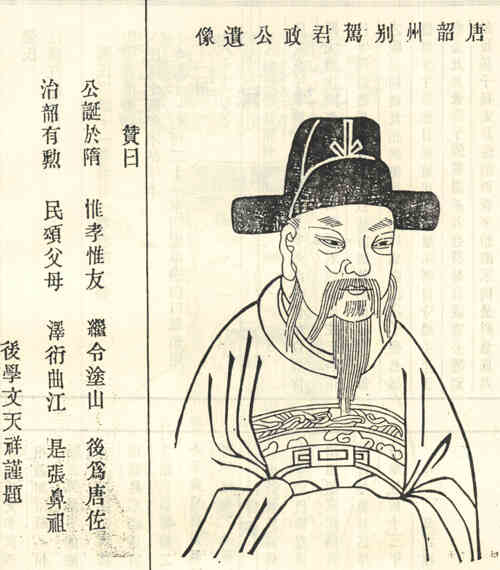 唐韶州别駕君政公遺像
贊曰
公誕於隋 惟孝惟友 繼令塗山 後爲唐佐
治韶有勲 民頌父母 澤衍曲江 是張鼻祖
後學文天祥謹題